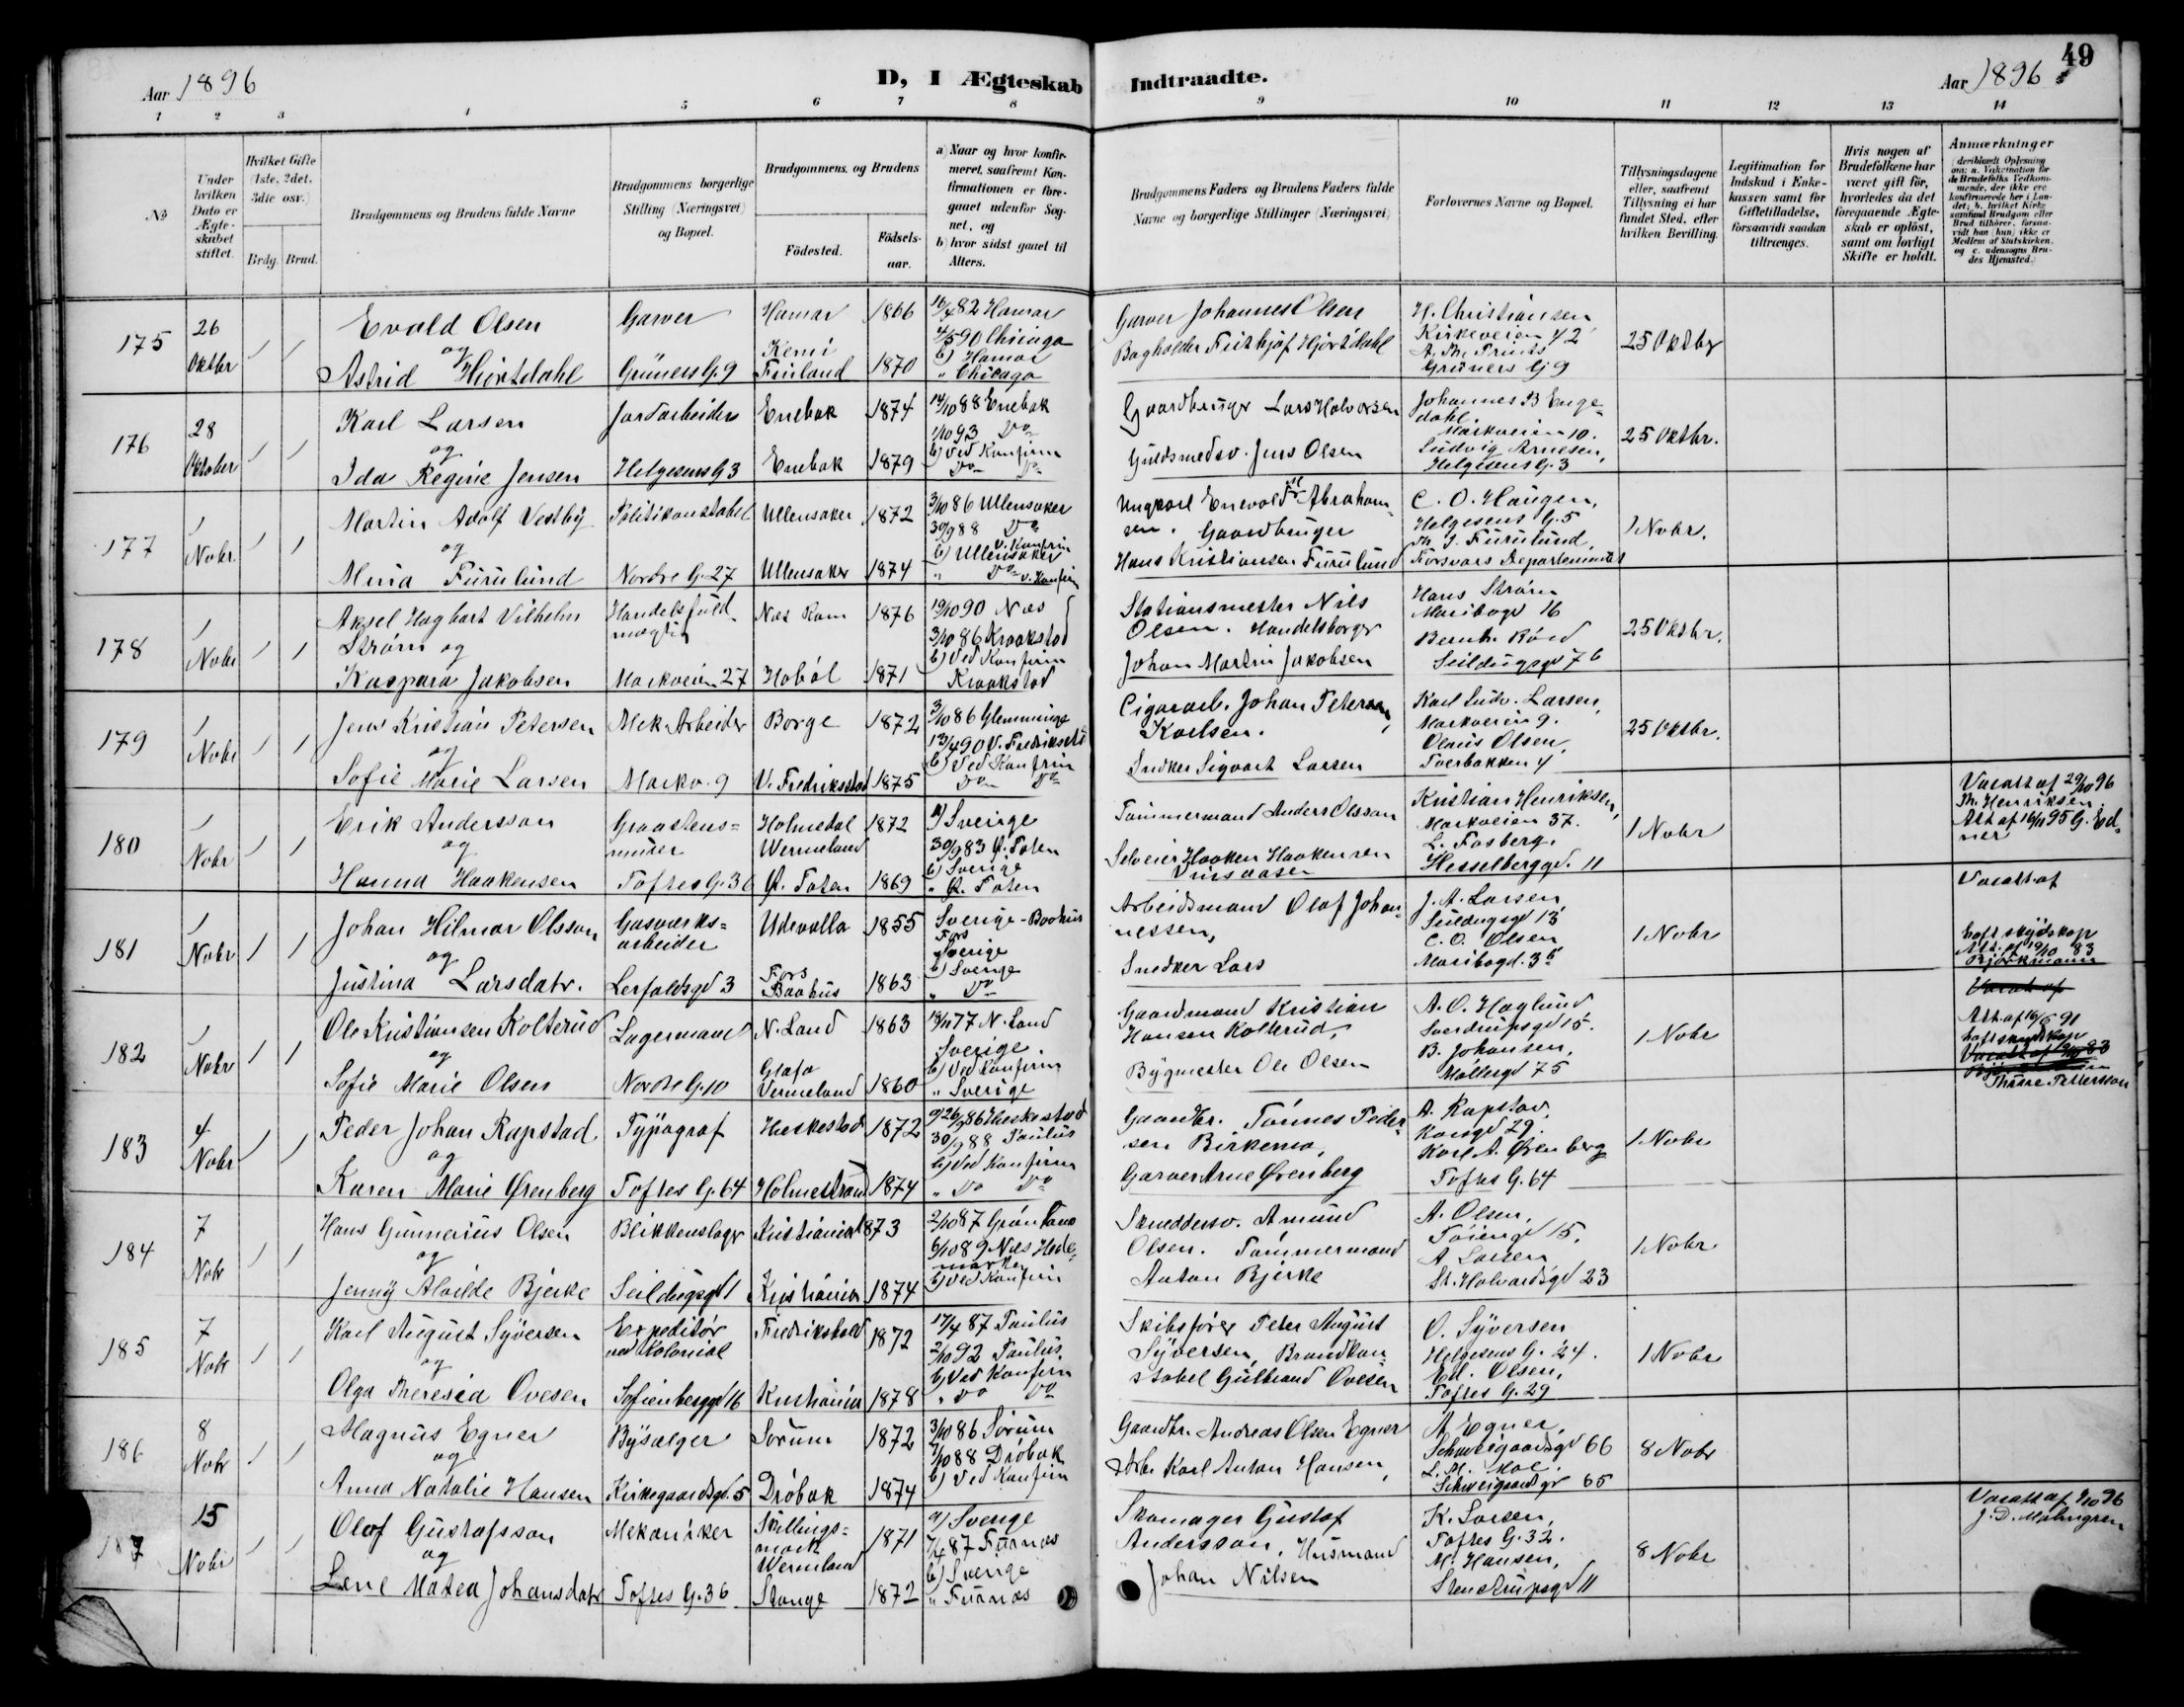 49
Aar 1896
D, I Ægteskab Indtraadte.
Aar 1896
1 2 3 4 5 6 7 8 9 10 11 12 13 14
№
Under hvilken Dato er Ægte-skabet stiftet.
Hvilket Gifte (1ste, 2det, 3die osv.)
Brdg. Brud.
Brudgommens og Brudens fulde Navne
Brudgommens borgerlige Stilling (Næringsvei) og Bopæl.
Brudgommens og Brudens
Födested.
Födsels-aar.
a) Naar og hvor konfir-meret, saafremt Kon-firmationen er fore-gaaet udenfor Sog-net, og
b) hvor sidst gaaet til Alters.
Brudgommens Faders og Brudens Faders fulde Navne og borgerlige Stillinger (Næringsvei)
Forlovernes Navne og Bopæl.
Tillysningsdagene eller, saafremt Tillysning ei har fundet Sted, efter hvilken Bevilling.
Legitimation for Indskud i Enke-kassen samt for Giftetilladelse, forsaavidt saadan tiltrænges.
Hvis nogen af Brudefolkene har været gift för, hvorledes da det foregaaende Ægte-skab er oplöst, samt om lovligt Skifte er holdt.
Anmærkninger (deriblandt Oplysning om: a. Vakcination for de Brudefolks Vedkom-mende, der ikke ere konfirmerede her i Lan-det; b. hvilket Kirke-samfund Brudgom eller Brud tilhörer, forsaa-vidt han (hun) ikke er Medlem af Statskirken. og c. udensogns Bru-des Hjemsted.)
175
26 Oktbr
1 1
Evald Olsen
og
Astrid Hiortdahl
Garver
Grüners G. 9
Hamar 1866
Kemi Finland 1870
16/4 82 Hamar
4/5 90 Chicago
b) Hamar
" Chicago
Garver Johannes Olsen
Bogholder Frithjof Hjortdahl
H. Christiansen
Kirkeveien 42
Grüners G 9
25 Oktbr
176
28 Oktober
1 1
Karl Larsen
og
Ida Regine Jensen
Jordarbeider
Helgesens G 3
Enebak 1874
Enebak 1879
14/10 88 Enebak
1/10 93 Do
b) Ved Konfirm
Do Do
Gaardbruger Lars Halvorsen
Guldsmedsv. Jens Olsen
Johannes B Enge-
dahl
Markveien 10.
Ludvig Arnesen,
Helgesens G. 3
25 Oktbr.
177
1 Nobr.
1 1
Martin Adolf Vestby
og
Mina Furulund
Politikonstabel
Nordre G. 27
Ullensaker 1872
Ullensaker 1874
3/10 86 Ullensaker
30/9 88 Do
b) Ullensaker v. Konfirm
" Do v. Konfirm
Ungkarl Enevold Abraham-
sen. Gaardbruger
Hans Kristiansen Furulund
C. O. Haugen,
Helgesens G. 5
Th. J. Furulund
Forsvars Departementet
1 Nobr.
178
1 Nobr
1 1
Aksel Hagbart Vilhelm
Strøm og
Kaspara Jakobsen
Handelsfuld-
mægtig
Markveien 27
Næs Rom 1876
Hobøl 1871
19/10 90 Næs
3/10 86 Kraakstad
b) Ved Konfirm
Kraakstad
Stationsmester Nils
Olsen. Handelsborger
Johan Martin Jakobsen
Hans Strøm
Maribogd 16
Bernh. Röed
Seildugsgd 76
25 Oktbr.
179
1 Nobr
1 1
Jens Kristian Petersen
og
Sofie Marie Larsen
Mek. Arbeider
Markv. 9
Borge 1872
V. Fredrikstad 1875
3/10 86 Glemminge
13/4 90 V. Fredrikstd
b) Ved Konfirm
Do Do
Cigararb. Johan Petersen,
Karlsen.
Snedker Sigvart Larsen
Karl Ludv. Larsen,
Markveien 9.
Olaus Olsen,
Tverbakken 4
25 Oktbr.
180
1 Nobr
1 1
Erik Andersson
og
Hanna Haakensen
Graastens-
murer
Toftes G. 36
Holmedal Wermeland 1872
Ø. Toten 1869
a) Sverige
30/9 83 Ø. Toten
b) Sverige
" Ø. Toten
Tømmermand Anders Olsson
Selveier Haaken Haakensen
Kristian Henriksen,
Markveien 37.
L. Fosberg.
Hesselberggd. 11
1 Nobr
Vacatt af 29/10 96
Th. Henriksen.
Att af 16/11 95 G. Ed-
ner
181
1 Nobr
1 1
Johan Hilmar Olsson
og
Justina Larsdatr.
Gasværks-
arbeider
Lerfaldsgd 3
Udevalla 1855
Fors Baahus 1863
Sverige - Boohus
Fors
Sverige
b) Sverige
" Do
Arbeidsmand Olof Johan-
nessen,
Snedker Lars
J. A. Larsen,
Seildugsgd 13
C. O. Olsen
Maribogd. 3b
1 Nobr
Vacatt af
Att. af 19/10 83
Björkmann
182
1 Nobr
1 1
Ole Kristiansen Kolterud
og
Sofie Marie Olsen
Lagermand
Nordre G. 10
N. Land 1863
Glafo Vermeland 1860
18/11 77 N. Land
Sverige
b) Ved Konfirm
" Sverige
Gaardmand Kristian
Hansen Kolterud,
Bygmester Ole Olsen
A. O. Haglund
Sverdrupsgd 15.
B. Johansen,
Møllergd 75
1 Nobr
Att af 16/6 91
Thure Pettersson
183
4 Nobr
1 1
Peder Johan Rapstad
og
Karen Marie Ørenberg
Typograf
Toftes G. 64
Heskestad 1872
Holmestrand 1874
a) 26/9 86 Heskestad
30/9 88 Paulus
b) Ved Konfirm
" Do Do
Gaardbr. Tønnes Peder-
sen Birkemo,
Garver Arne Ørenberg
A. Rapstad,
Kongd 29.
Karl A. Ørenberg
Toftes G. 64
1 Nobr
184
7 Nobr
1 1
Hans Gunnerius Olsen
og
Jenny Alvilde Bjerke
Blikkenslagr
Seildugsgd 1
Kristiania 1873
Kristiania 1874
2/10 87 Grønland
6/10 89 Næs Hede-
marken
b) Ved Konfirm
Skreddersv. Amund
Olsen. Tømmermand
Anton Bjerke
A. Olsen,
Töiengd 15,
A Larsen
St. Halvardsgd 23
1 Nobr
185
7 Nobr
1 1
Karl August Syversen
og
Olga Theresia Ovesen
Expeditør
ved Kolonial
Sofienberggd 16
Fredrikshald 1872
Kristiania 1878
17/4 87 Paulus
2/10 92 Paulus.
b) Ved Konfirm
" Do Do
Skibsfører Peter August
Syversen, Brandkon-
stabel Gulbrand Ovesen
O. Syversen
Helgesens G. 24.
Ed. Olsen,
Toftes G. 29
1 Nobr
186
8 Nobr
1 1
Magnus Egner
og
Anna Natalie Hansen
Bysælger
Kirkegaardsgd. 5
Sørum 1872
Drøbak 1874
3/10 86 Sørum
7/10 88 Drøbak
b) Ved Konfirm
Gaardbr. Andreas Olsen Egner
Arb. Karl Anton Hansen,
A Egner,
Schweigaardsgd 66
L. M. Moe.
Schweigaardsgr 65
8 Nobr
187
15 Nobr
1 1
Olof Gustafsson
og
Lene Matea Johansdatr
Mekaniker
Toftes G. 36
Skillings-
mark
Wermland 1871
Stange 1872
a) Sverige
7/4 87 Furnæs
b) Sverige
" Furnæs
Skomager Gustaf
Andersson. Husmand
Johan Nilsen
K. Larsen,
Toftes G. 32.
M. Hansen,
Stenstrupsgd 11
8 Nobr
Vacatt af 9/10 96
J. D. Malmgren